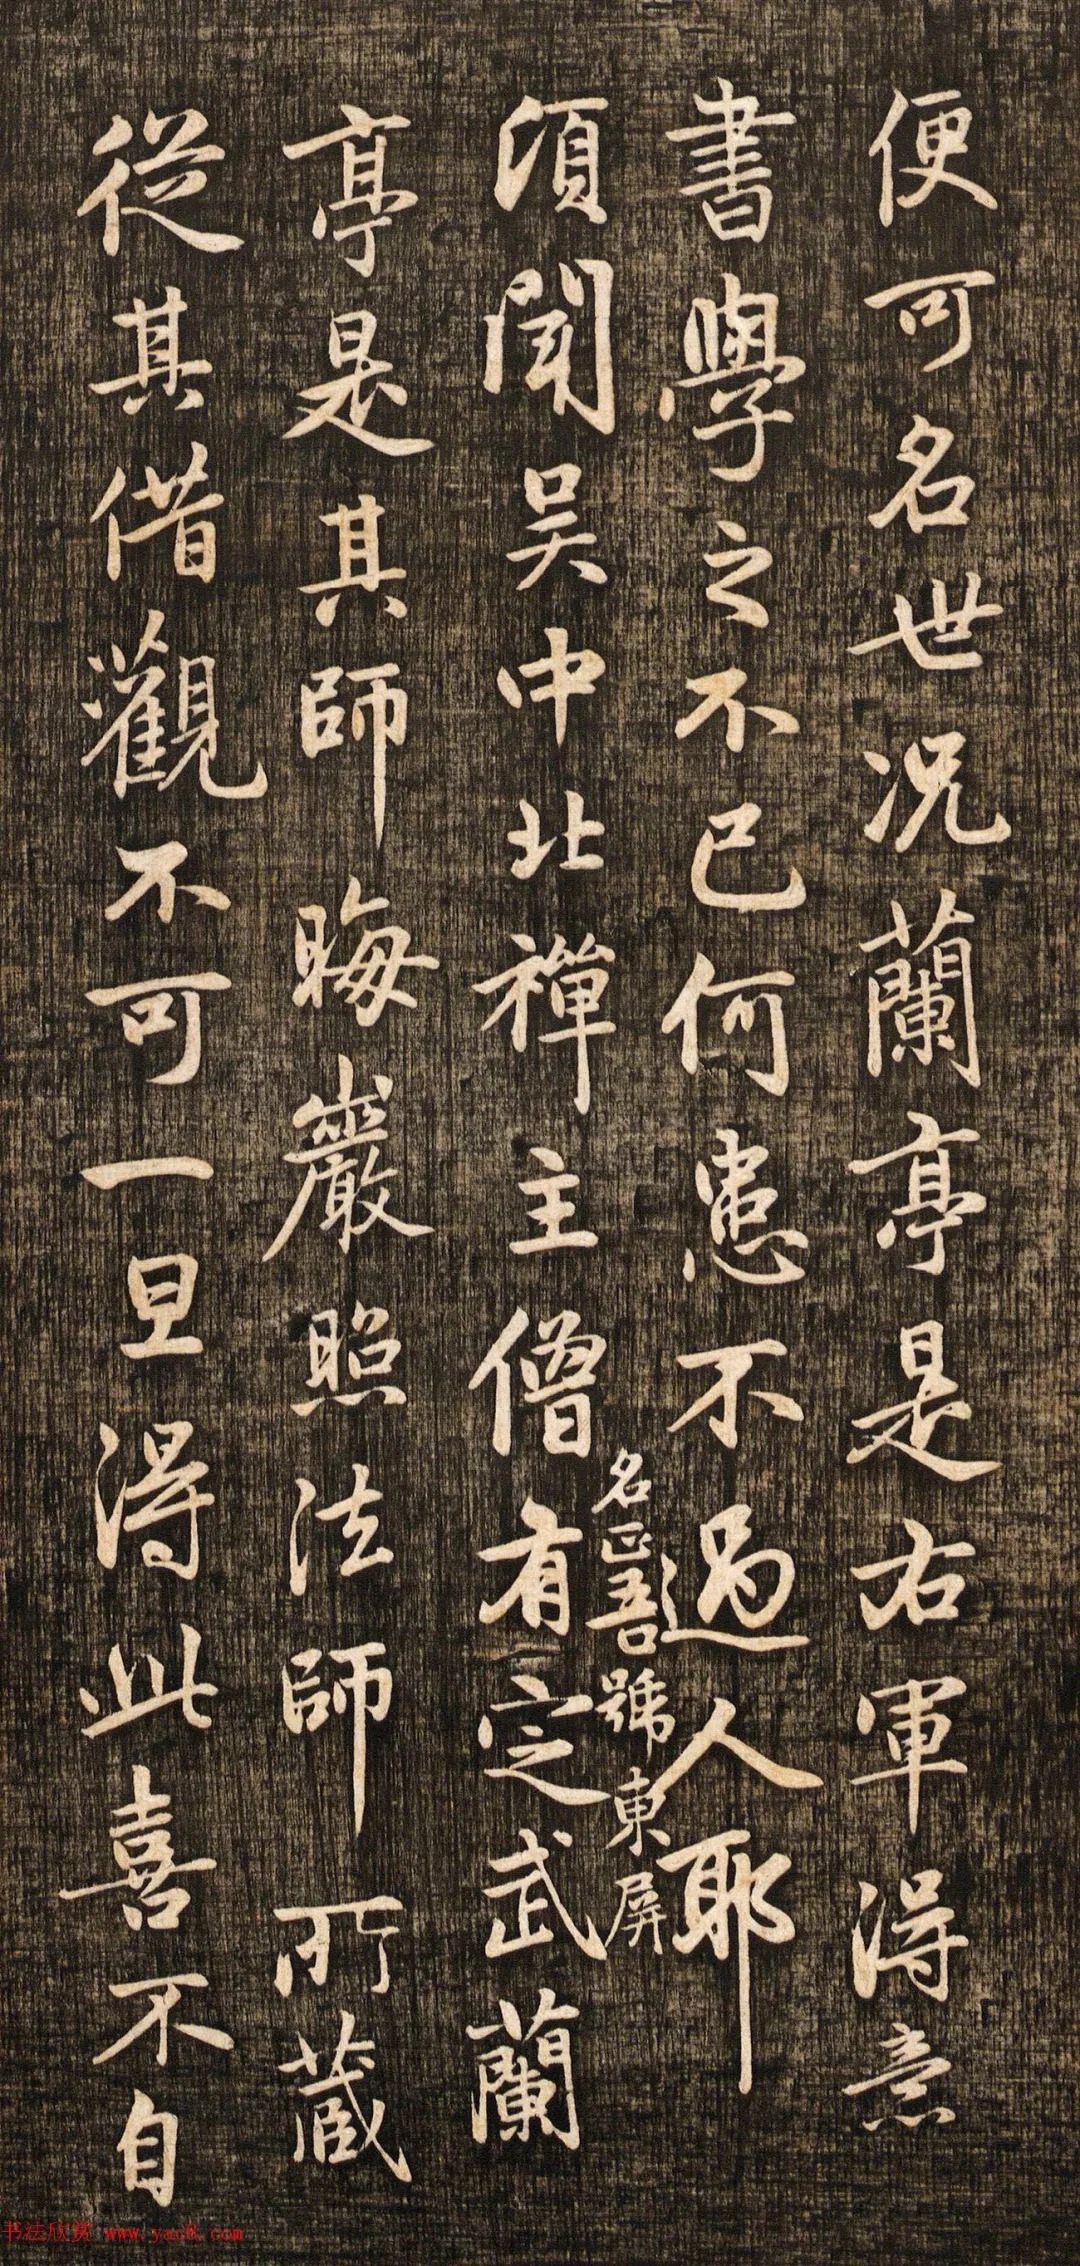 便可名世况蘭亭是右軍得意
書學之不已何患不過人耶
頃聞吴中北禪主僧有定武蘭
名正吾號東屏
亭是其師晦巖照法師所蔵
從其借觀不可一旦得此喜不自
书法欣赏 www.yac8.com